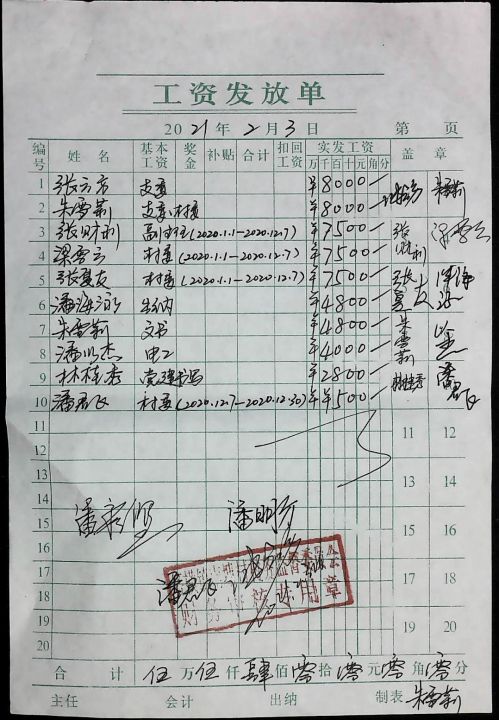 工资发放单
2021年2月3日 第 页
编号 姓名 基本工资 奖金 补贴 合计 扣回工资 实发工资 盖章
万千百十元角分
1 张云京 支委 ¥8000—
2 朱雪莉 支委.村委 ¥8000— 朱雪莉
3 张财利 (2020.1.1-2020.12.7) ¥7500— 张财利 梁雪云
4 梁雪云 村委(2020.1.1-2020.12.7) ¥7500—
5 张夏友 村委(2020.1.1-2020.12.7) ¥7500— 张夏友
6 潘海泳 出纳 ¥4800—
7 朱雪莉 文书 ¥4800— 朱雪莉
8 潘以杰 电工 ¥4000—
9 林桂秀 党建 ¥2800— 林桂秀 潘君飞
10 潘君飞 村委(2020.12.7-2020.12.30) ¥500—
11 12
13 14
15 16
17 18
19 20
11
12
13
14
15 潘明
16
17
18 潘君飞
财务 专用章
19
20
合计 伍万伍仟肆佰零拾零元零角零分
主任 会计 出纳 制表 朱雪莉